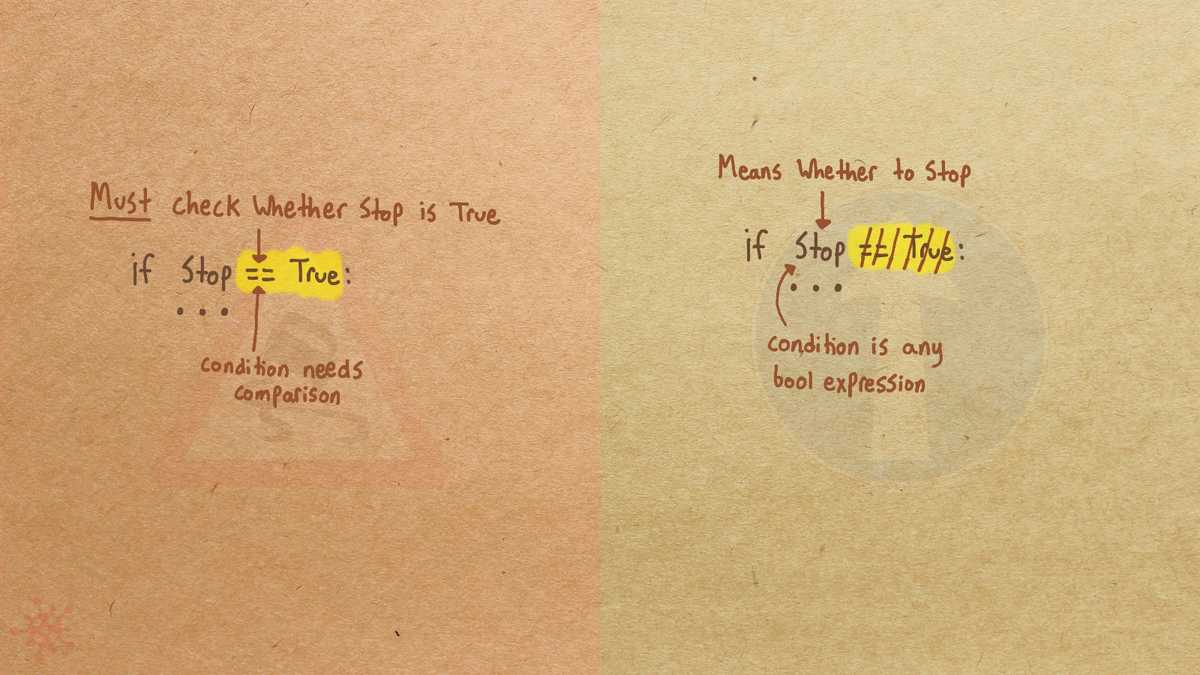 Must check whether Stop is True
if Stop == True:
...
condition needs
comparison
Means whether to stop
if Stop == True:
...
condition is any
bool expression